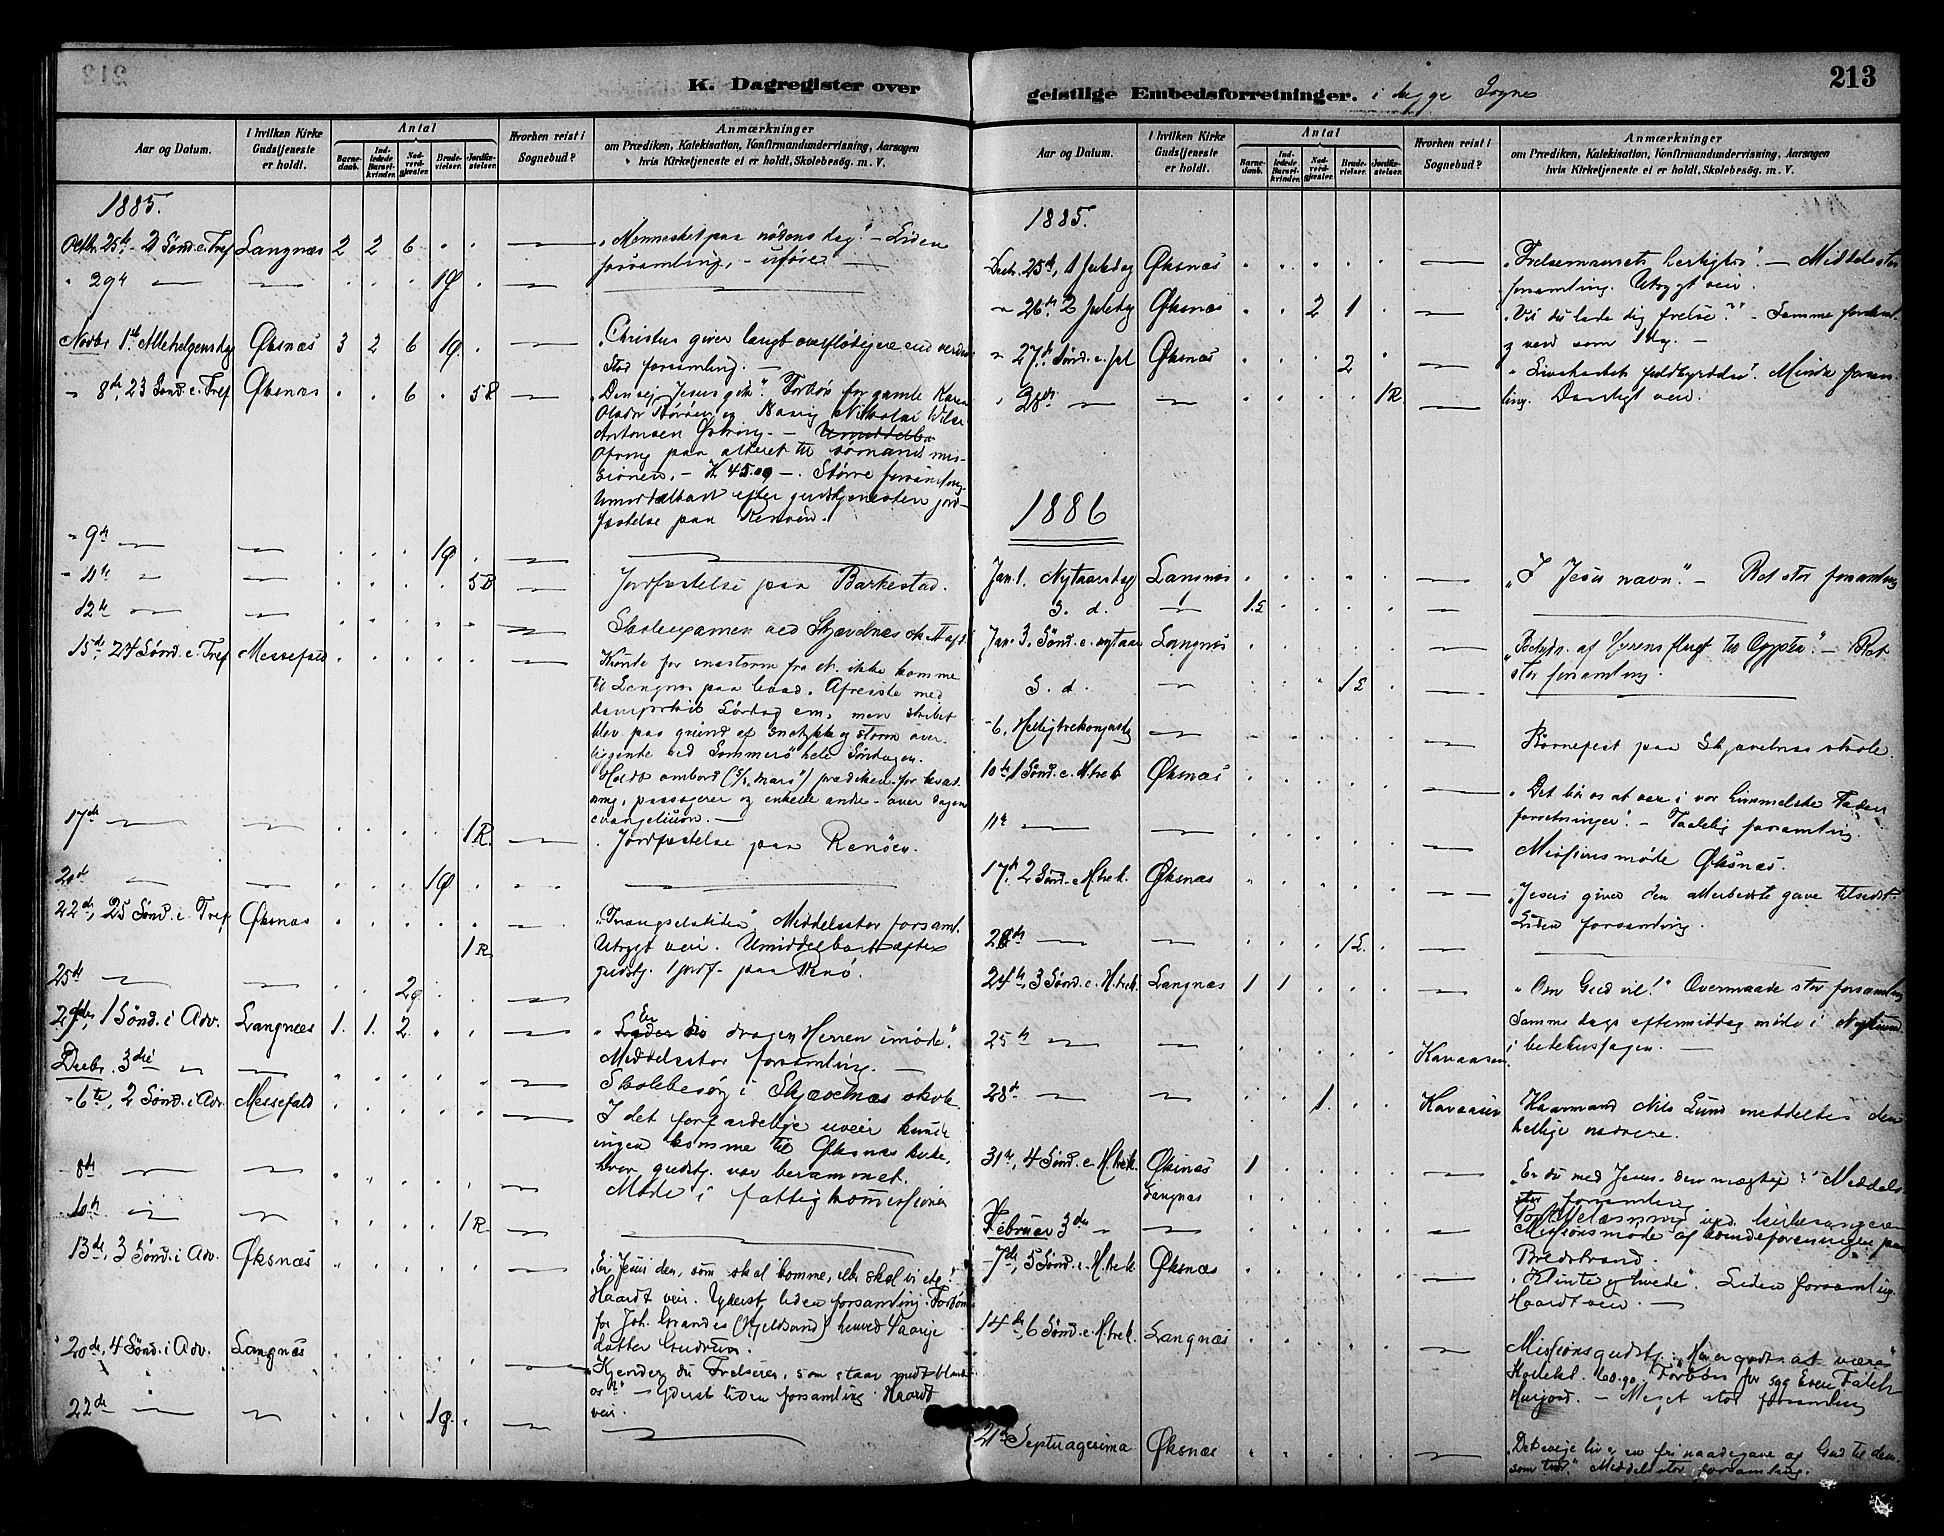 K. Dagregister over
Aar og Datum.
I hvilken Kirke Gudstjeneste er holdt.
Antal
Barnedaab.
Indledede Barselkvinder.
Nadverdgjester.
Brudevielser.
Jordfæstelser.
Hvorhen reist i Sognebud?
Anmærkninger
om Prædiken, Katekisation, Konfirmandundervisning, Aarsagen
hvis Kirketjeneste ei er holdt, Skolebesög. m. V.
1885.
Octbr. 25de 2 Sønd. e. Tref Langnæs 2 2 6 „Mennesket paa nødens dag." – Liden
forsamling, – uføre
" 29de 1Ø
Novbr 1ste Allehelgensdag Øksnæs 3 2 6 1Ø „Christus giver langt overflødigere end verden
Stor forsamling. –
" 8de, 23 Sønd. e. Tref Øksnæs 6 5R Forbøn for gamle Karen
Antonsen
paa alteret til sømandsmis-
sionen, – K 45.00 –. Større forsamling.
Umiddelbart efter gudstjenesten jord-
fæstelse paa Renøen.
" 9de 1Ø
" 11te 5B Jordfæstelse paa Barkestad.
12te Skoleexamen ved Skjævelnes skole
15de, 24 Sønd. e. Tref Messefald Kunde for snestorm fra N. ikke komme
til Langnæs paa baad. Afreiste med
dampskib Lørdag em, men skibet
blev paa grund af snetykke og storm over-
liggende ved Sommerø hele Søndagen.
Holdt ombord prædiken for besæt-
ning, passagerer og enkelte andre – over dagens
evangelium. –
17de 1R. Jordfæstelse paa Renöen.
20de 1Ø
22de, 25 Sønd. e. Tref Øksnæs „Trangselstiden" Middelsstor forsaml.
Utrygt veir. Umiddelbart efter
1R gudstj. jordf. paa Renø.
25de 2
29de, 1 Sønd. i Adv. Langnæs 1. 1. 2. drager Herren imøde".
Middelsstor forsamling. –
Decbr. 3die Skolebesøg i Skjævelnæs skole.
" 6te, 2 Sønd. i Adv. Messefald I det forfærdelige uveir kunde
ingen komme til Øksnæs kirke,
hvor gudstj. var berammet.
8de Møde i fattigkommissionen
10de 1R.
13de, 3 Sønd. i Adv. Øksnæs „Er Jesus den, som skal komme, eller skal vi
Haardt veir. Yderst liden forsamling. Forbøn
for Joh.
datter Gudrun.
20de, 4 Sønd. i Adv. Langnæs Kjender du Frelseren, som staar midt iblandt
os?" – Yderst liden forsamling. Haardt
veir.
22de 1Ø.
geistlige Embedsforretninger. i begge Sogne
213
Aar og Datum.
I hvilken Kirke Gudstjeneste er holdt.
Antal
Barnedaab.
Indledede Barselkvinder.
Nadverdgjester.
Brudevielser.
Jordfæstelser.
Hvorhen reist i Sognebud?
Anmærkninger
om Prædiken, Katekisation, Konfirmandundervisning, Aarsagen
hvis Kirketjeneste ei er holdt, Skolebesög. m. V.
1885.
Decbr. 25de, 1 juledag Øksnæs – Middelsstor
forsamling. Utrygt veir.
" 26de 2 juledag Øksnæs 2 1 „Vil du lade dig frelse?" – Samme forsaml.
og veir som 1 dag. –
" 27de Sønd. e. jul Øksnæs 2 Mindre forsam-
ling. Daarligt veir.
" 28de 1R.
1886
Jan. 1. Nytaarsdag Langnæs „I Jesu navn." – Ret stor forsamling
S. d. 1L
Jan. 3. Sønd. e. nytaar Langnæs af Herrens flugt til Ægypten." – Ret
stor forsamling.
S. d. 1L
" 6. Helligtrekongersdag Barnefest paa Skjævelnæs skole.
10de 1 Sønd. e. H.trek. Øksnæs „Det bør os at være i vor himmelske Faders
forretninger". – Taalelig forsamling.
11te Missionsmøde Øksnæs.
17de 2 Sønd. e. H.trek. Øksnæs „Jesus giver den allerbedste gave tilsidst".
Liden forsamling.
1L.
24de, 3 Sønd. e. H.trek. Langnæs 1 1 „Om Gud vil!" Overmaade stor forsamling
Samme dags eftermiddag møde i
i bedehussagen. –
25de Kavaasen
28de 1. Kavaasen Kaarmand Nils Lund meddeltes den
hellige nadvere.
31te, 4 Sønd. e. H.trek. Øksnæs 1 „Er du med Jesus, den mægtige?" Middels-
stor forsamling
Langnæs ved kirkesangeren
Februar 3die Missionsmøde af kvindeforeningen paa
Bredstrand.
" 7de, 5 Sønd. e. H.trek. Øksnæs „Klinte og hvede". Liden forsamling.
Haardt veir. –
14de, 6 Sønd. e. H.trek. Langnæs Missionsgudstj. „Her er godt at være"
Kollekt. Forbøn for syg
– Meget stor forsamling
21de Septuagesima Øksnæs „Det evige liv er en fri naadegave af Gud til dem,
som tror." Middelsstor forsamling.